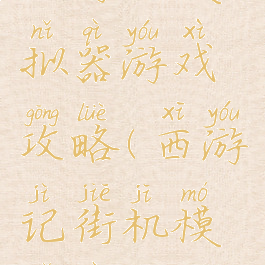 nǐ qì yóu xì
拟器游戏
gōng lüè xī yóu
攻略(西游
jì jiē jī mó
记街机模